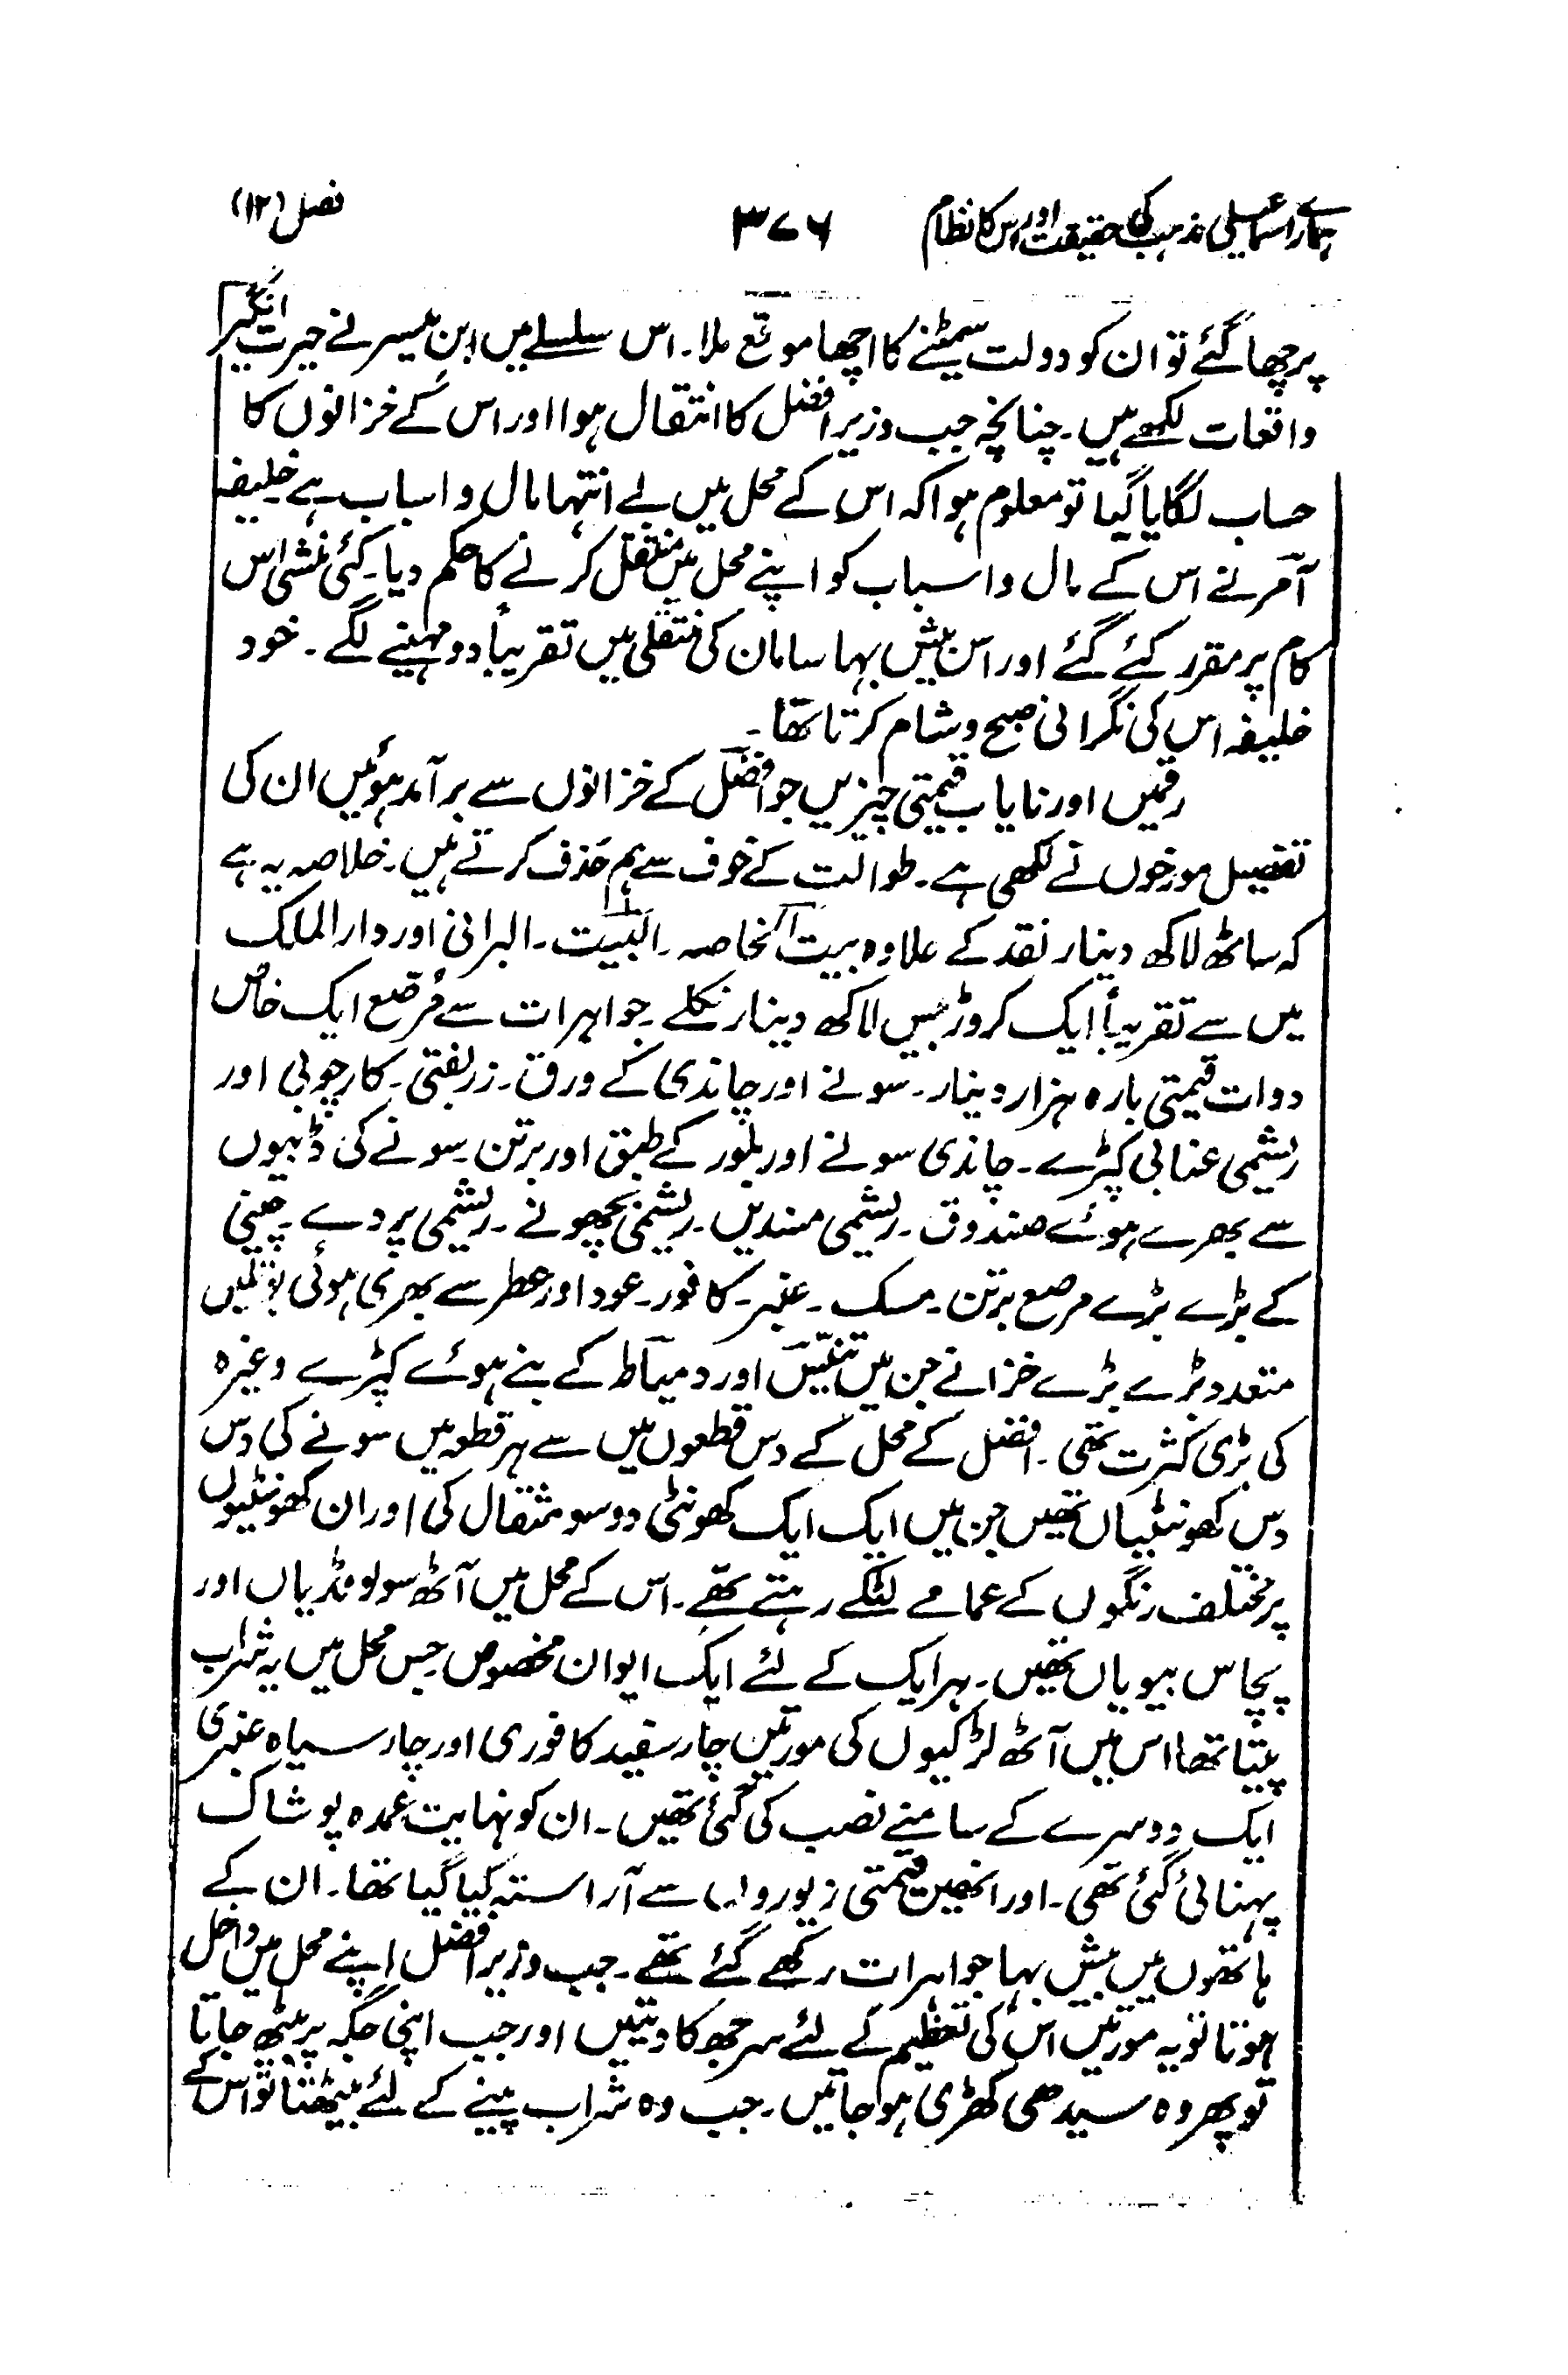 ہمارے اسماعیلی مذہب کی حقیقت اور اس کا نظام ۳۷۶ فصل (۱۲)
پر چھا گئے تو ان کو دولت سمیٹنے کا اچھا موقع ملا۔ اس سلسلے میں ابن میسر نے حیرت انگیز
واقعات لکھے ہیں۔ چنانچہ جب وزیر افضل کا انتقال ہوا اور اس کے خزانوں کا
حساب لگایا گیا تو معلوم ہوا کہ اس کے محل میں بے انتہا مال و اسباب ہے خلیفہ
آمر نے اس کے مال و اسباب کو اپنے محل میں منتقل کرنے کا حکم دیا۔ کئی منشی اس
کام پر مقرر کئے گئے اور اس بیش بہا سامان کی منتقلی میں تقریباً دو مہینے لگے۔ خود
خلیفہ اس کی نگرانی صبح و شام کرتا تھا۔
رقمیں اور نایاب قیمتی چیزیں جو افضل کے خزانوں سے برآمد ہوئیں ان کی
تفصیل مورخوں نے لکھی ہے۔ طوالت کے خوف سے ہم حذف کرتے ہیں۔ خلاصہ یہ ہے
کہ ساٹھ لاکھ دینار نقد کے علاوہ بیت الخاصہ۔ البیت۔ البرانی اور دار الملک
میں سے تقریباً ایک کروڑ بیس لاکھ دینار نکلے۔ جواہرات سے مُرصّع ایک خاص
دوات قیمتی بارہ ہزار دینار۔ سونے اور چاندی کے ورق۔ زربفتی۔ کارچوبی اور
ریشمی عنابی کپڑے۔ چاندی سونے اور بلور کے طبق اور برتن۔ سونے کی ڈبیوں
سے بھرے ہوئے صندوق۔ ریشمی مسندیں۔ ریشمی بچھونے۔ ریشمی پردے۔ چینی
کے بڑے بڑے مرصع برتن۔ مسک۔ عنبر۔ کافور۔ عود اور عطر سے بھری ہوئی بوتلیں
متعدد بڑے بڑے خزانے جن میں تنّیس اور دمیاط کے بنے ہوئے کپڑے وغیرہ
کی بڑی کثرت تھی۔ افضل کے محل کے دس قطعوں میں سے ہر قطعہ میں سونے کی دس
دس کھونٹیاں تھیں جن میں ایک ایک کھونٹی دو سو مثقال کی اور ان کھونٹیوں
پر مختلف رنگوں کے عمامے لٹکے رہتے تھے۔ اس کے محل میں آٹھ سو لونڈیاں اور
پچاس بیویاں تھیں۔ ہر ایک کے لئے ایک ایوان مخصوص جس محل میں یہ شراب
پیتا تھا اس میں آٹھ لڑکیوں کی مورتیں چار سفید کافوری اور چار سیاہ عنبری
ایک دوسرے کے سامنے نصب کی گئی تھیں۔ ان کو نہایت عمدہ پوشاک
پہنائی گئی تھی۔ اور انھیں قیمتی زیوروں سے آراستہ کیا گیا تھا۔ ان کے
ہاتھوں میں بیش بہا جواہرات رکھے گئے تھے۔ جب وزیر افضل اپنے محل میں داخل
ہوتا تو یہ مورتیں اس کی تعظیم کے لئے سر جھکا دیتیں اور جب اپنی جگہ پر بیٹھ جاتا
تو پھر وہ سیدھی کھڑی ہو جاتیں۔ جب وہ شراب پینے کے لئے بیٹھتا تو اس کے